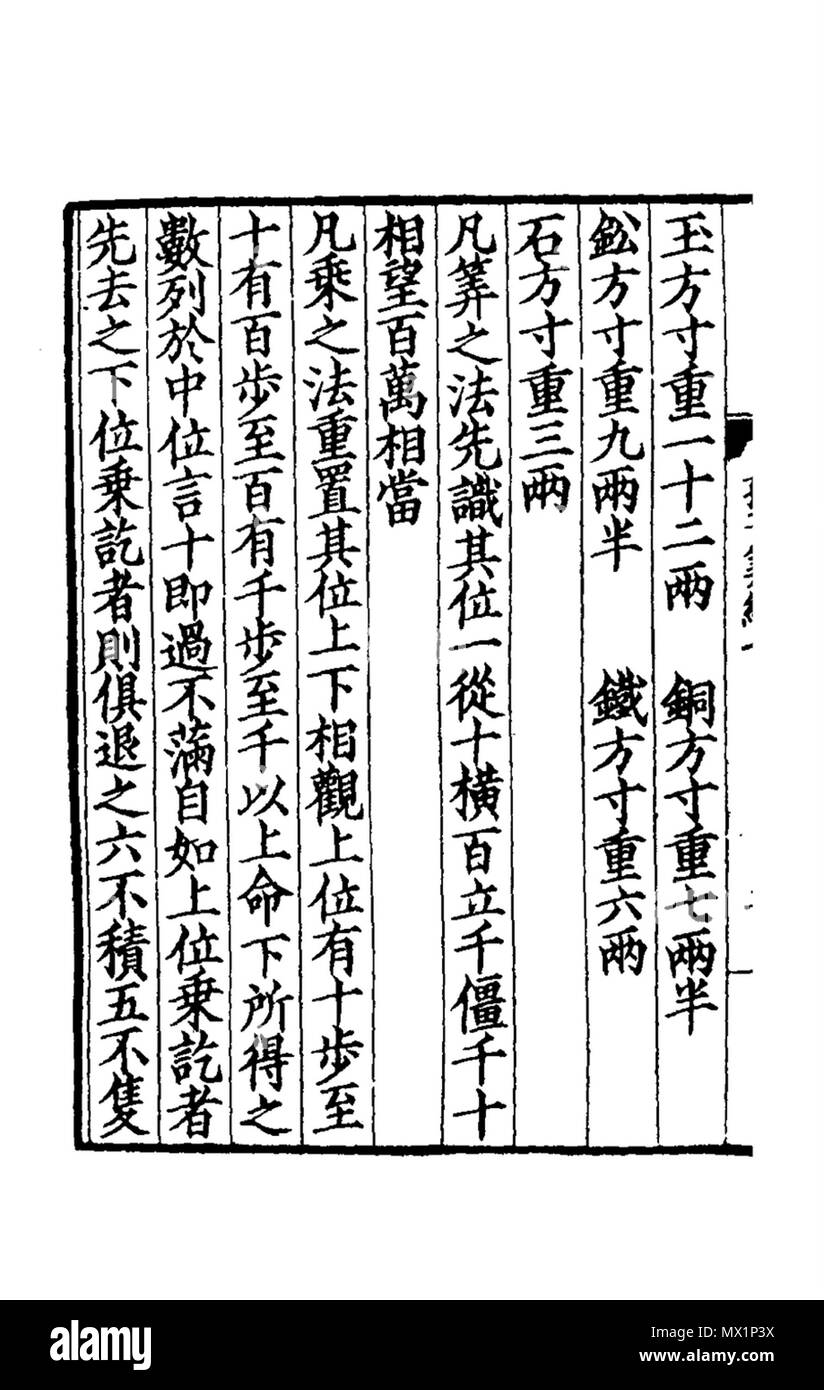 玉方寸重一十二兩　銅方寸重七兩半
鈆方寸重九兩半　鐵方寸重六兩
石方寸重三兩
凡筭之法先識其位一從十橫百立千僵千十
相望百萬相當
凡乗之法重置其位上下相觀上位有十步至
十有百步至百有千步至千以上命下所得之
數列於中位言十即過不滿自如上位乗訖者
先去之下位乗訖者則俱退之六不積五不隻
alamy
Image ID: MX1P3X
www.alamy.com